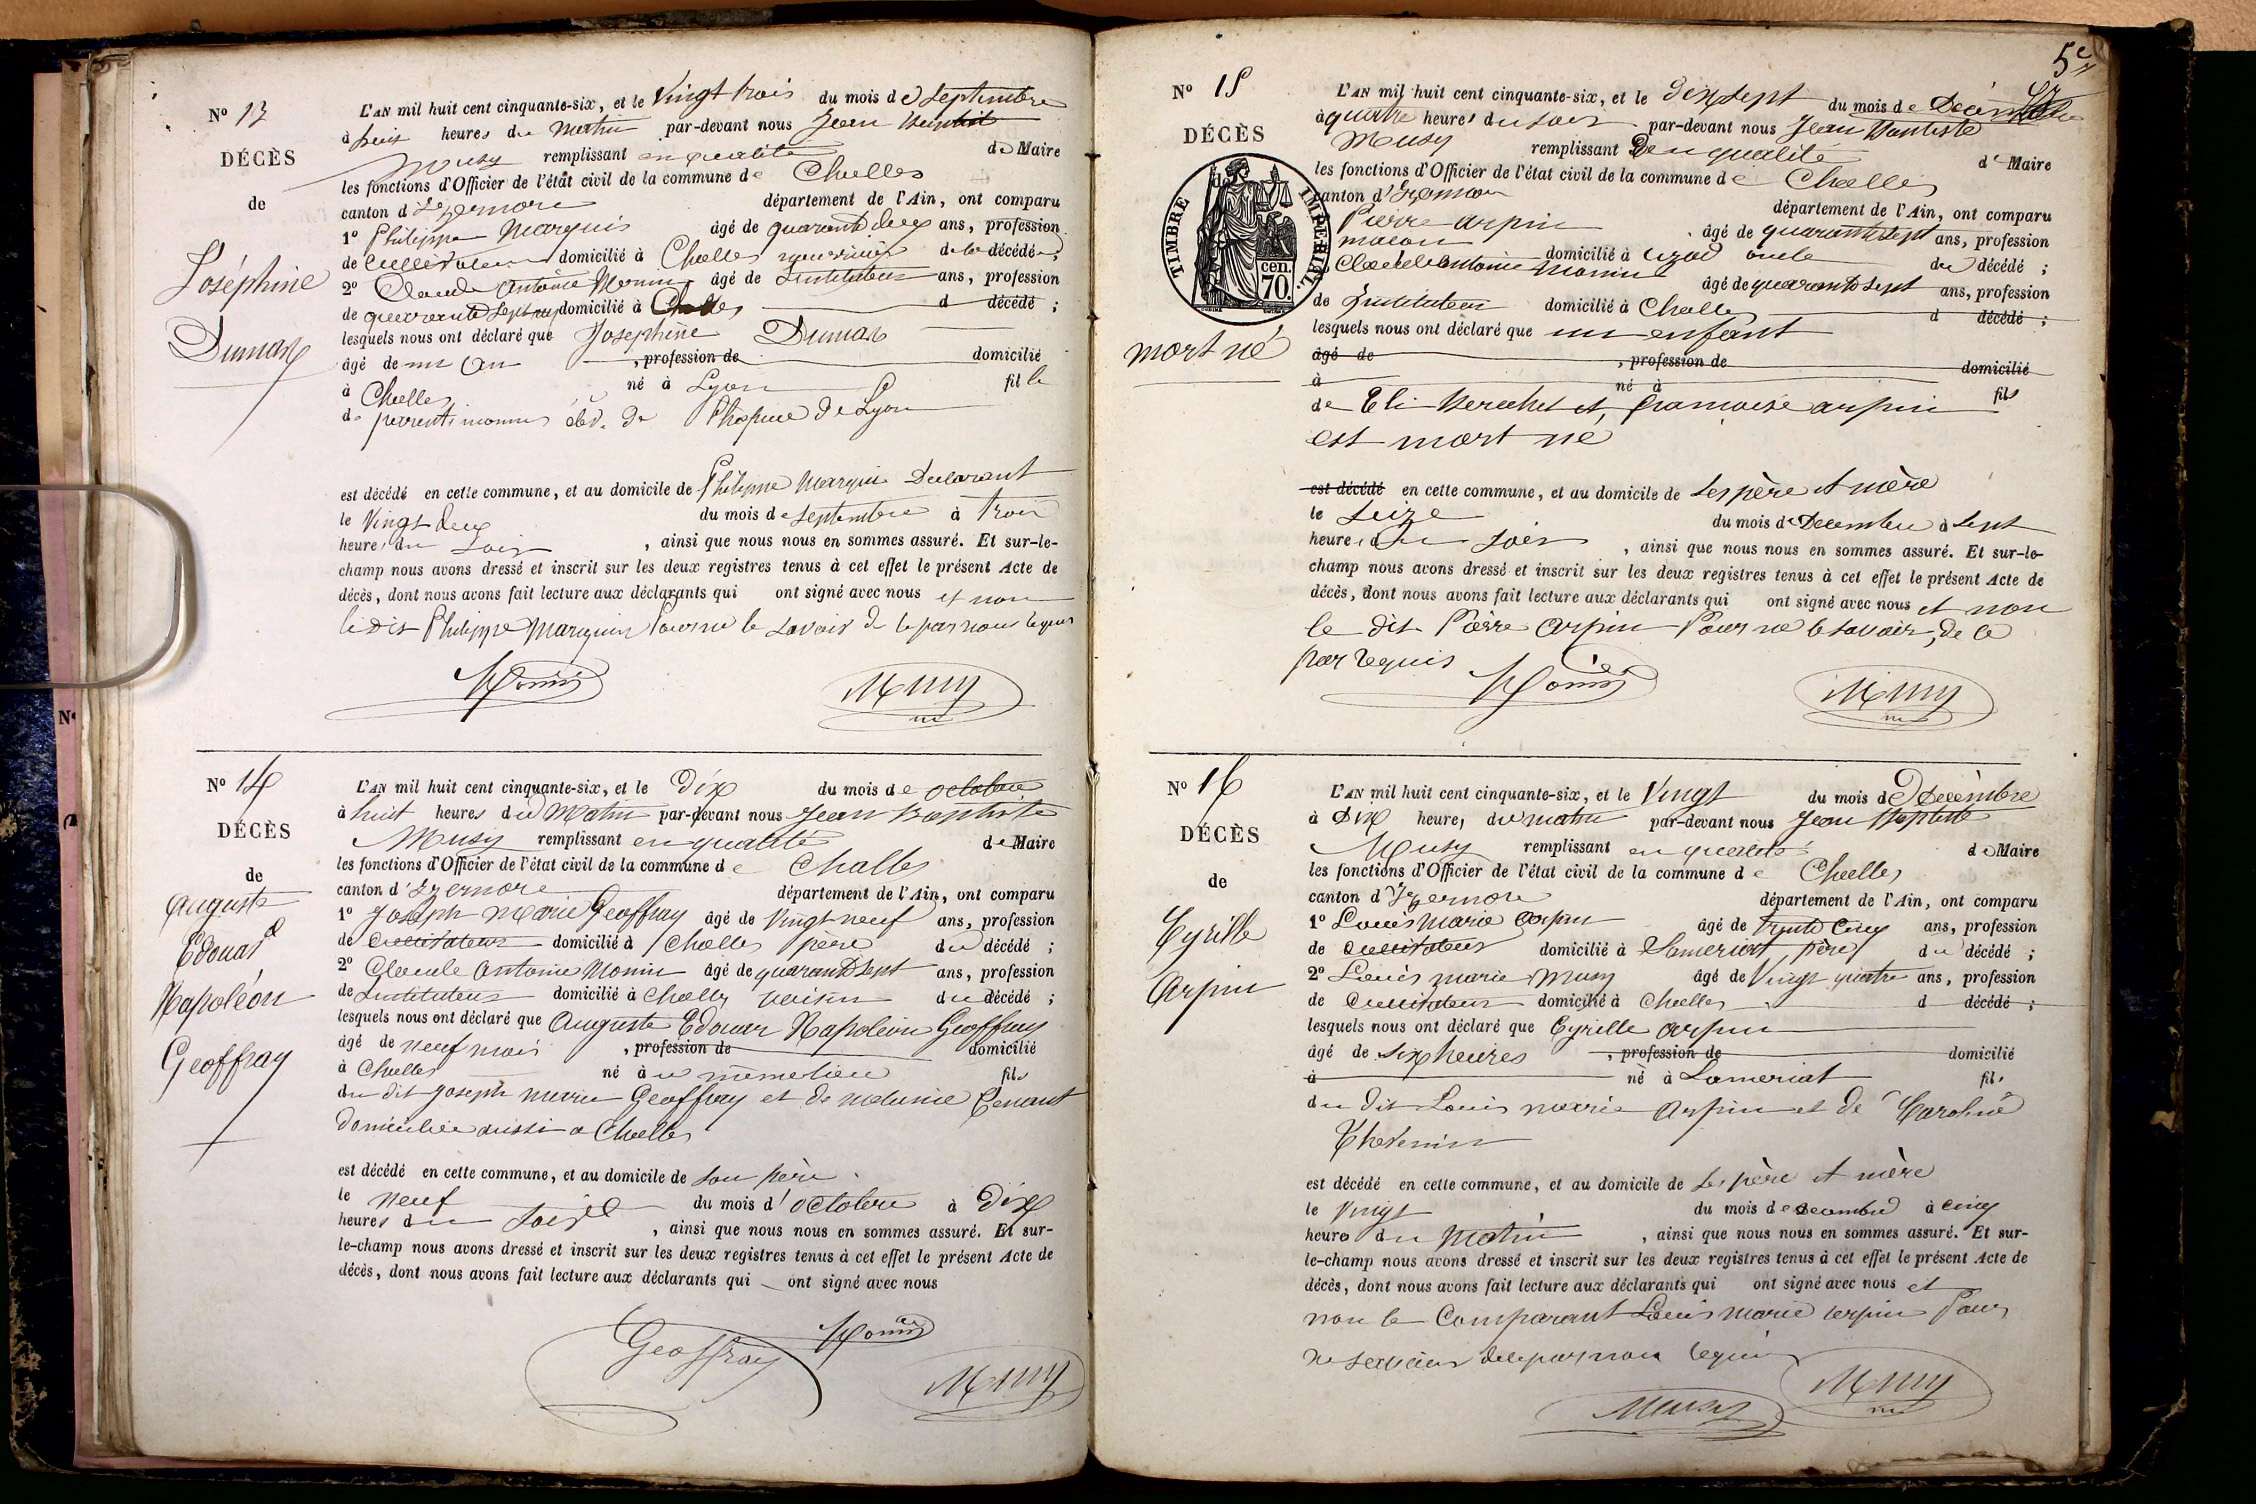 Nº 13
DÉCÈS
de
Joséphine
Dumas
L'AN mil huit cent cinquante-six, et le Vingt trois du mois de Septembre
à huit heures du Matin par-devant nous Jean Baptiste
Musy remplissant en qualité de Maire
les fonctions d'Officier de l'état civil de la commune de Challes
canton d'Izernore département de l'Ain, ont comparu
1º Philippe Marquis âgé de quarante deux ans, profession
de Cultivateur domicilié à Challes nourricier de la décédée;
2º Claude Antoine Monin âgé de Instituteur ans, profession
de quarante Sept domicilié à Challes d décédé ;
lesquels nous ont déclaré que Josephine Dumas
âgé de un an , profession de domicilié
à Challes né à Lyon fille
de parents inconnus de l'hospice de Lyon
est décédé en cette commune, et au domicile de Philippe Marquis Déclarant
le Vingt deux du mois de Septembre à trois
heures du Soir , ainsi que nous nous en sommes assuré. Et sur-le-
champ nous avons dressé et inscrit sur les deux registres tenus à cet effet le présent Acte de
décès, dont nous avons fait lecture aux déclarants qui ont signé avec nous et non
le dit Philippe Marquis Pour ne le savoir de ce par nous requis
Monin Musy
Nº 14
DÉCÈS
de
Auguste
Edouard
Napoléon
Geoffray
L'AN mil huit cent cinquante-six, et le Dix du mois de octobre
à huit heures du Matin par-devant nous Jean Baptiste
Musy remplissant en qualité de Maire
les fonctions d'Officier de l'état civil de la commune de Challes
canton d'Izernore département de l'Ain, ont comparu
1º Joseph Marie Geoffray âgé de Vingt neuf ans, profession
de Cultivateur domicilié à Challes père du décédé ;
2º Claude Antoine Monin âgé de quarante Sept ans, profession
de Instituteur domicilié à Challes voisin du décédé ;
lesquels nous ont déclaré que Auguste Edouar Napoléon Geoffray
âgé de neuf mois , profession de domicilié
à Challes né à u même lieu fils
du dit Joseph marie Geoffray et de melanie
Domiciliée aussi a Challes
est décédé en cette commune, et au domicile de Son père
le neuf du mois d'octobre à Dix
heures du Soir , ainsi que nous nous en sommes assuré. Et sur-
le-champ nous avons dressé et inscrit sur les deux registres tenus à cet effet le présent Acte de
décès, dont nous avons fait lecture aux déclarants qui ont signé avec nous
Geoffray Monin Musy
5e
Nº 15
DÉCÈS
TIMBRE IMPÉRIAL
70 cen.
mort né
L'AN mil huit cent cinquante-six, et le Dix Sept du mois de Décembre
à quatre heures du soir par-devant nous Jean Baptiste
Musy remplissant en qualité de Maire
les fonctions d'Officier de l'état civil de la commune de Challes
canton d'Izernore département de l'Ain, ont comparu
Pierre Arpin âgé de quarante sept ans, profession
macon domicilié à oncle du décédé ;
Claude Antoine Monin âgé de quarante Sept ans, profession
de Instituteur domicilié à Challes d décédé ;
lesquels nous ont déclaré que un enfant
âgé de , profession de domicilié
à né à fils
de Eli et Francoise arpin
est mort né
est décédé en cette commune, et au domicile de Ses père et mère
le Seize du mois de Decembre à Sept
heures du Soir , ainsi que nous nous en sommes assuré. Et sur-le-
champ nous avons dressé et inscrit sur les deux registres tenus à cet effet le présent Acte de
décès, dont nous avons fait lecture aux déclarants qui ont signé avec nous et non
le dit Pierre Arpin Pour ne le savoir, de ce
par requis
Monin Musy
Nº 16
DÉCÈS
de
Cyrille
Arpin
L'AN mil huit cent cinquante-six, et le Vingt du mois de Decèmbre
à Dix heures du matin par-devant nous Jean Baptiste
Musy remplissant en qualité de Maire
les fonctions d'Officier de l'état civil de la commune de Challes
canton d'Izernore département de l'Ain, ont comparu
1º Louis Marie Arpin âgé de trente Cinq ans, profession
de Cultivateur domicilié à Sameriat père du décédé ;
2º Louis marie Musy âgé de Vingt quatre ans, profession
de Cultivateur domicilié à Challes d décédé ;
lesquels nous ont déclaré que Cyrille Arpin
âgé de six heures , profession de domicilié
à né à Lameriat fils
du dit Louis marie Arpin et de Caroline
Thevenin
est décédé en cette commune, et au domicile de Ses père et mère
le Vingt du mois de decembre à cinq
heure du Matin , ainsi que nous nous en sommes assuré. Et sur-
le-champ nous avons dressé et inscrit sur les deux registres tenus à cet effet le présent Acte de
décès, dont nous avons fait lecture aux déclarants qui ont signé avec nous et
non le Comparant Louis marie Arpin Pour
ne savoir de ce par nous requis
Musy Musy